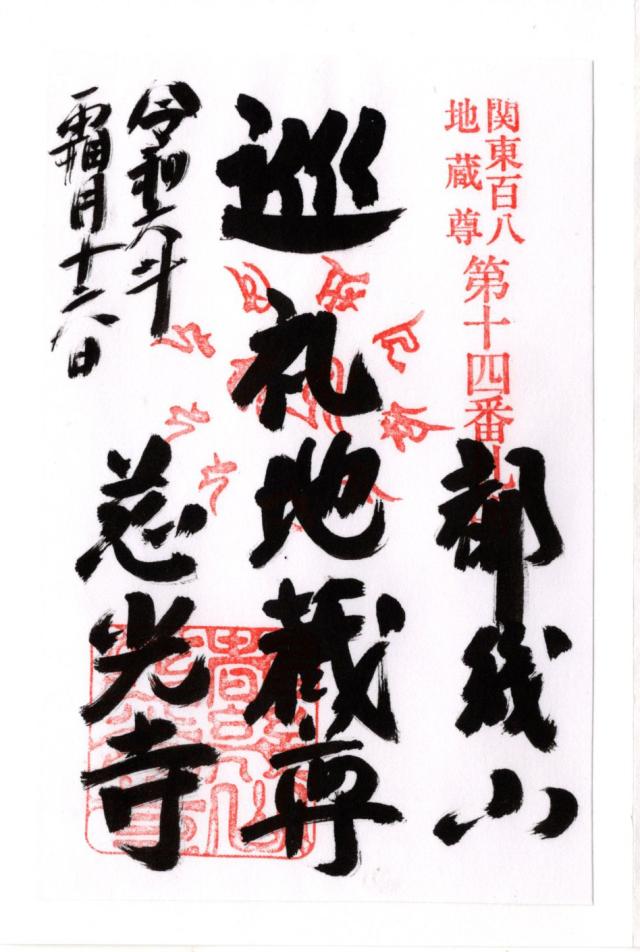 関東百八
地蔵尊
第十四番札
都幾山
巡礼地蔵尊
慈光寺
令和六年
霜月十六日